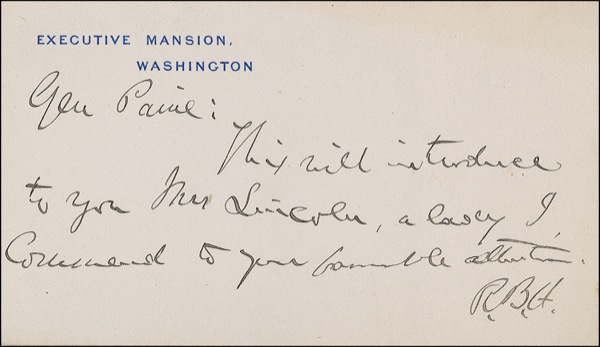 EXECUTIVE MANSION,
WASHINGTON
Gen Paine:
This will introduce
to you Mrs Lincoln, a lady I
Commend to your favorable attention.
R.B.H.